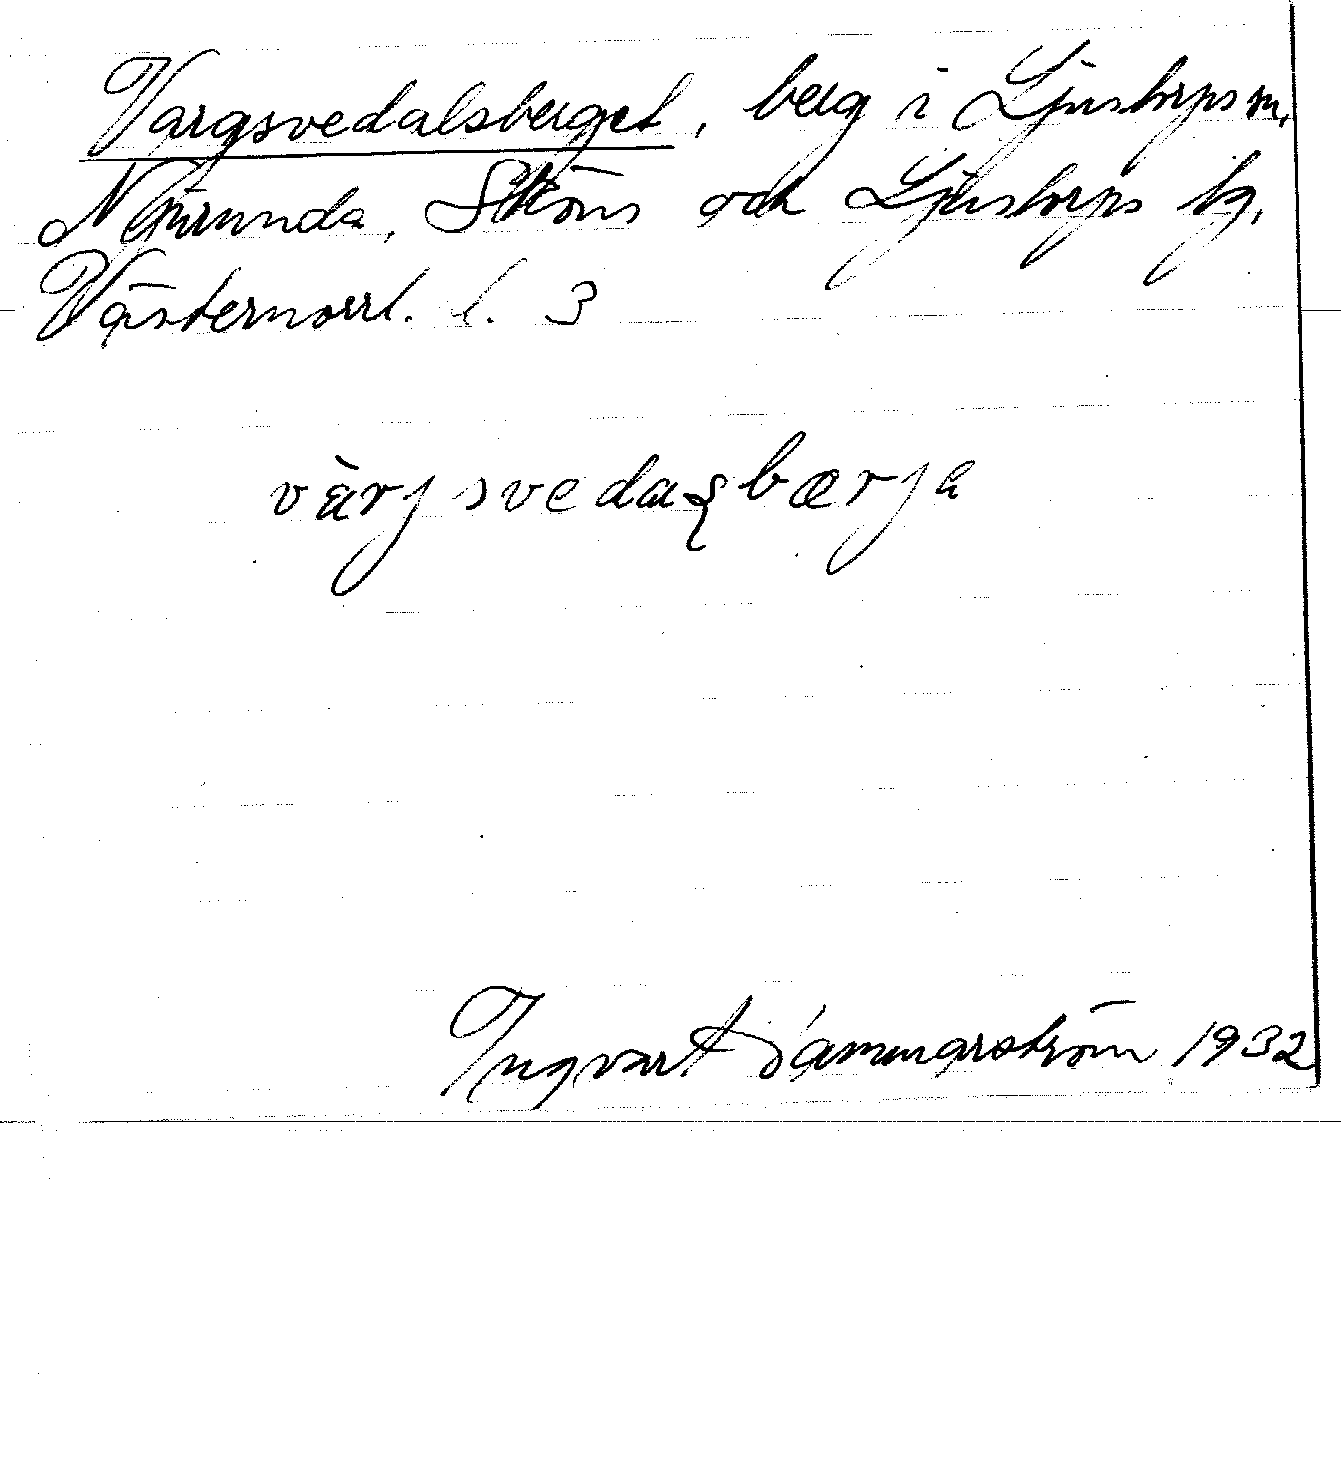 Vargsvedalsberget, berg i Ljustorps sn,
Njurunda, Sköns och Ljustorps tg,
Västernorrl. l. 3
värj svedaʂbærja
Ingvart Hammarström 1932